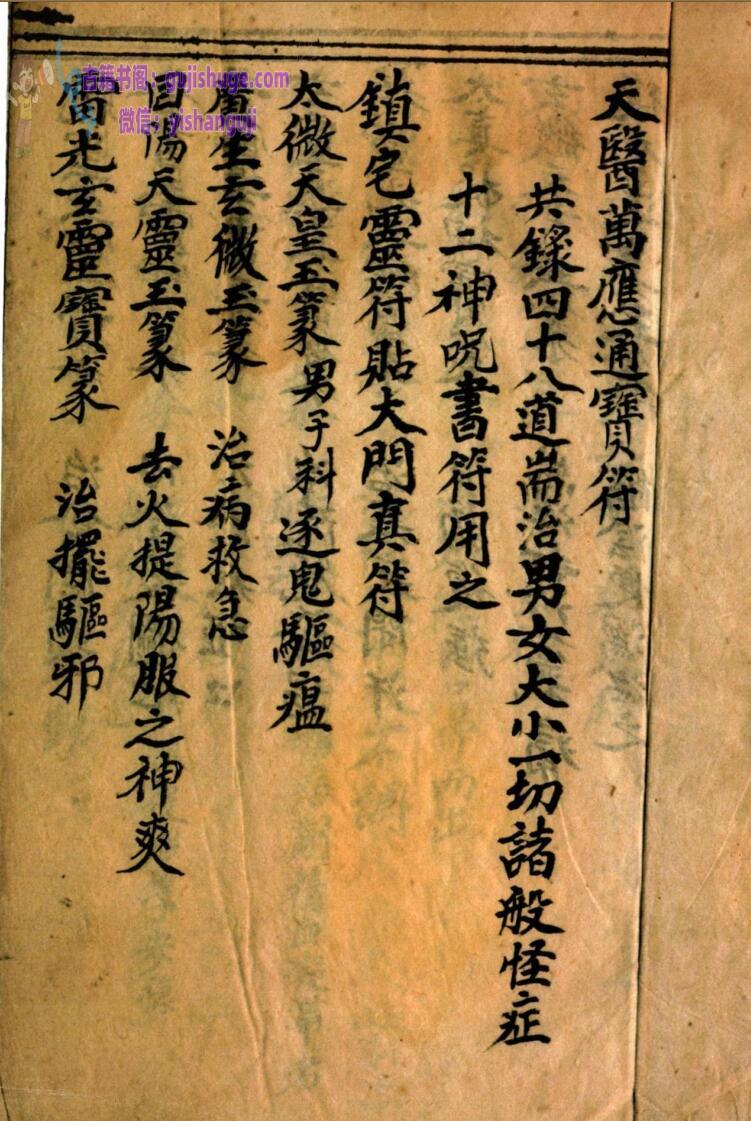 天醫萬應通寶符
共錄四十八道耑治男女大小一切諸般怪症
十二神咒書符用之
鎮宅靈符貼大門真符
太微天皇玉篆 男子科逐鬼驅瘟
玄微玉篆 治病救急
陽天靈玉篆 去火提陽服之神爽
雷光玄靈寶篆 治擺驅邪
古籍书阁:gujishuge.com
微信:yishanguji